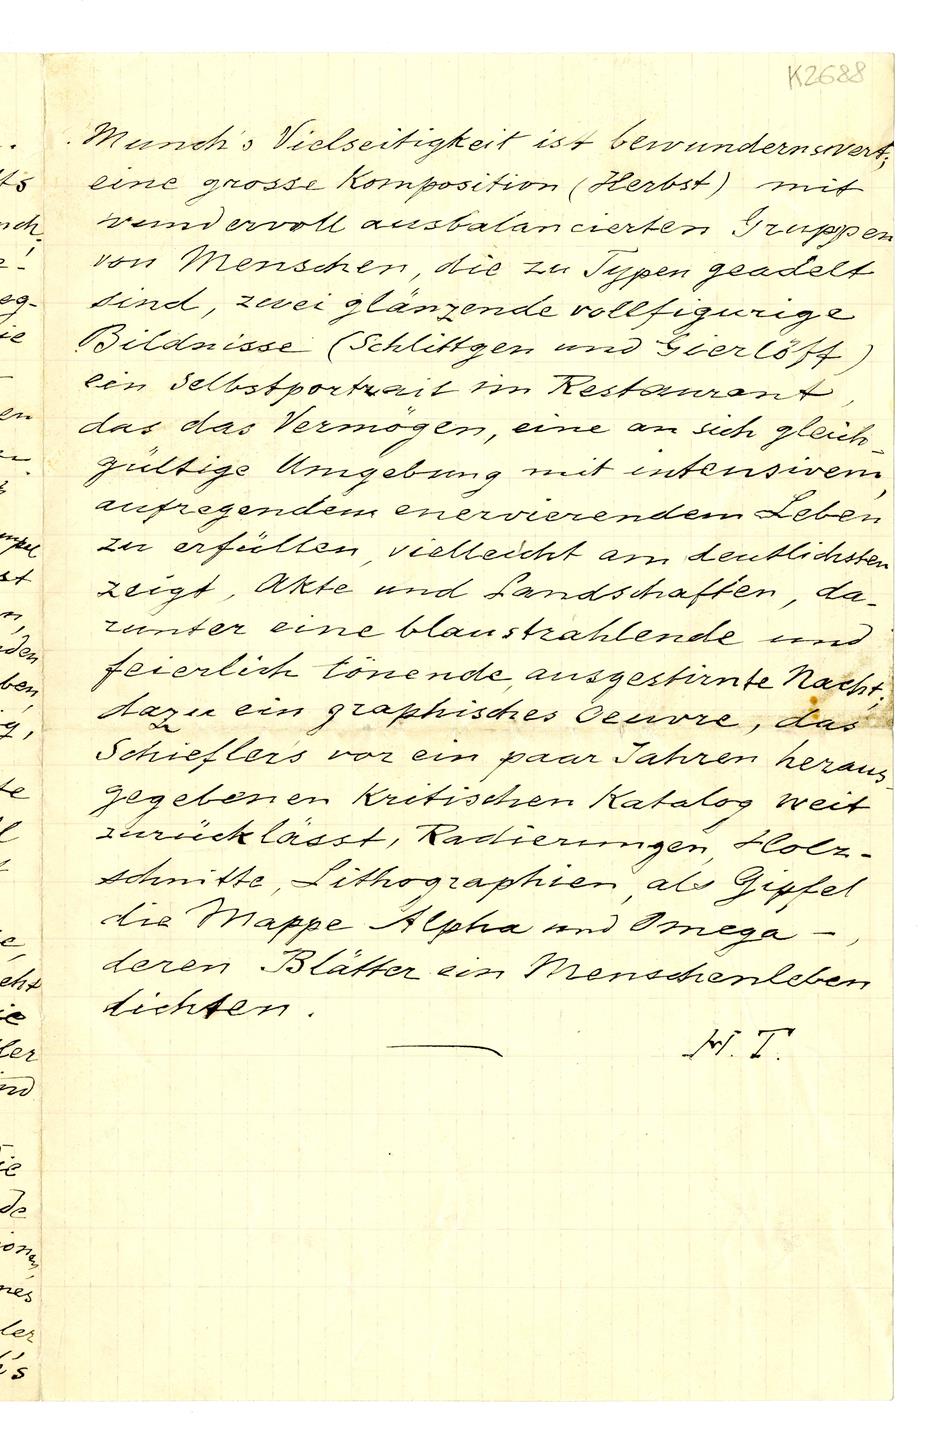 K2688
Munch's Vielseitigkeit ist bewundernswert;
eine grosse Komposition (Herbst) mit
wundervoll ausbalancierten Gruppen
von Menschen, die zu Typen geadelt
sind, zwei glänzende vollfigurige
Bildnisse (Schlittgen und Gierlöff)
ein Selbstportrait im Restaurant,
das das Vermögen, eine an sich gleich-
gültige Umgebung mit intensivem,
aufregendem enervierendem Leben
zu erfüllen, vielleicht am deutlichsten
zeigt, Akte und Landschaften, da-
runter eine blaustrahlende und
feierlich tönende, ausgestirnte Nacht;
dazu ein graphisches Oeuvre, das
Schieflers vor ein paar Jahren heraus-
gegebenen Kritischen Katalog weit
zurücklässt, Radierungen, Holz-
schnitte, Lithographien, als Gipfel
die Mappe Alpha und Omega -,
deren Blätter ein Menschenleben
dichten.
H. T.